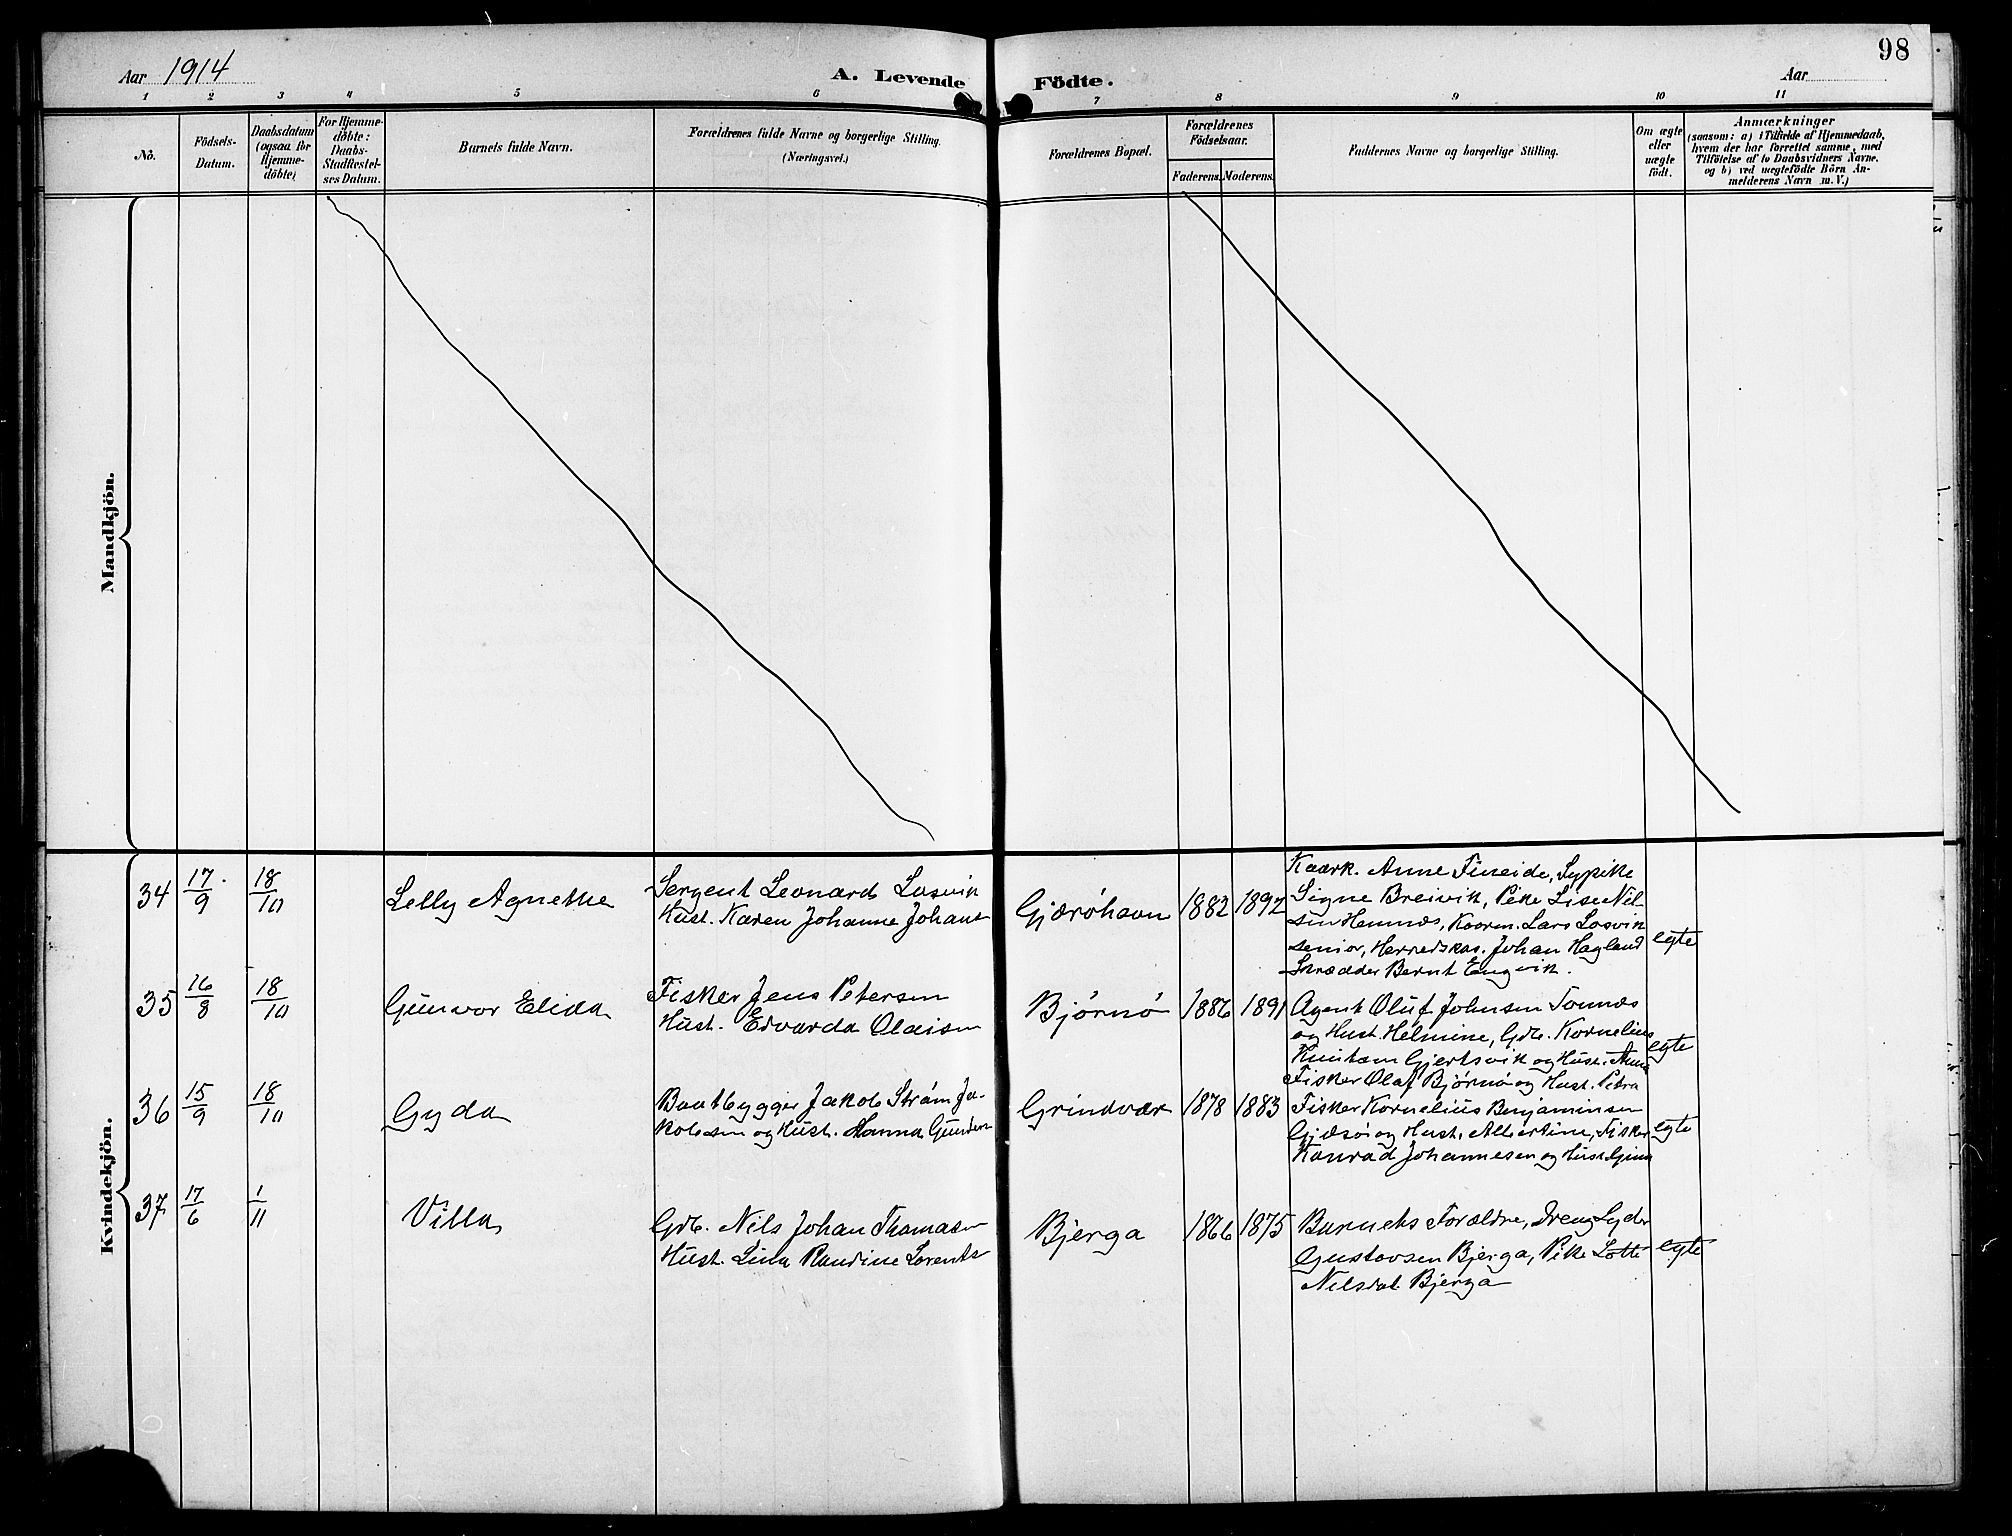 98
Aar 1914
A. Levende Födte.
Aar
1 2 3 4 5 6 7 8 9 10 11
No.
Födsels-
Datum.
Daabsdatum
(ogsaa for
Hjemme-
döbte)
For Hjemme-
döbte:
Daabs-
Stadfæstel-
ses Datum.
Barnets fulde Navn.
Forældrenes fulde Navne og borgerlige Stilling.
(Næringsvei.)
Forældrenes Bopæl.
Forældrenes
Födselsaar.
Faderens. Moderens.
Faddernes Navne og borgerlige Stilling.
Om ægte
eller
uægte
födt.
Anmærkninger
(saasom: a) i Tilfælde af Hjemmedaab,
hvem der har forrettet samme, med
Tilföielse af to Daabsvidners Navne,
og b) ved uægtefödte Börn An-
melderens Navn m. V.)
Mandkjön.
Kvindekjön.
34 17/9 18/10 Lelly Agnethe
Sergent Leonard Losvik
Hust. Karen Johanne Johans
Gjærøhavn 1882 1892
Kaark. Anne Fineide, Sypike
Signe Breivik, Pike Lise Nil-
sen Hemnæs, Kaarm. Lars Losvik
senior, Herredskas. Johan Hagland
Skrædder Bernt Engvik.
egte
35 16/8 18/10 Gunvor Elida
Fisker Jens Petersen
Hust. Edvarda Olaisen
Bjørnø 1886 1891
Agent Oluf Johnsen Tonnes
og Hust. Helmine, Gdb. Kornelius
Gjertsvik og Hust. Anna
Fisker Olaf Bjørnø og Hust. Petra
egte
36 15/9 18/10 Gyda
Baatbygger Jakob Strøm Ja-
kobsen og Hust. Hanna Gunders
Grindvær 1878 1883
Fisker Kornelius Benjaminsen
Gjæsø og Hust. Albertine, Fisker
Konrad Johannesen og Hust. Gina
egte
37 17/6 1/11 Villa
Gdb. Nils Johan Thomasen
Hust. Lina Randine Lorents
Bjerga 1866 1875
Barnets Forældre, Dreng Lyder
Gustavsen Bjerga, Pike Lotte
Nilsdat. Bjerga
egte